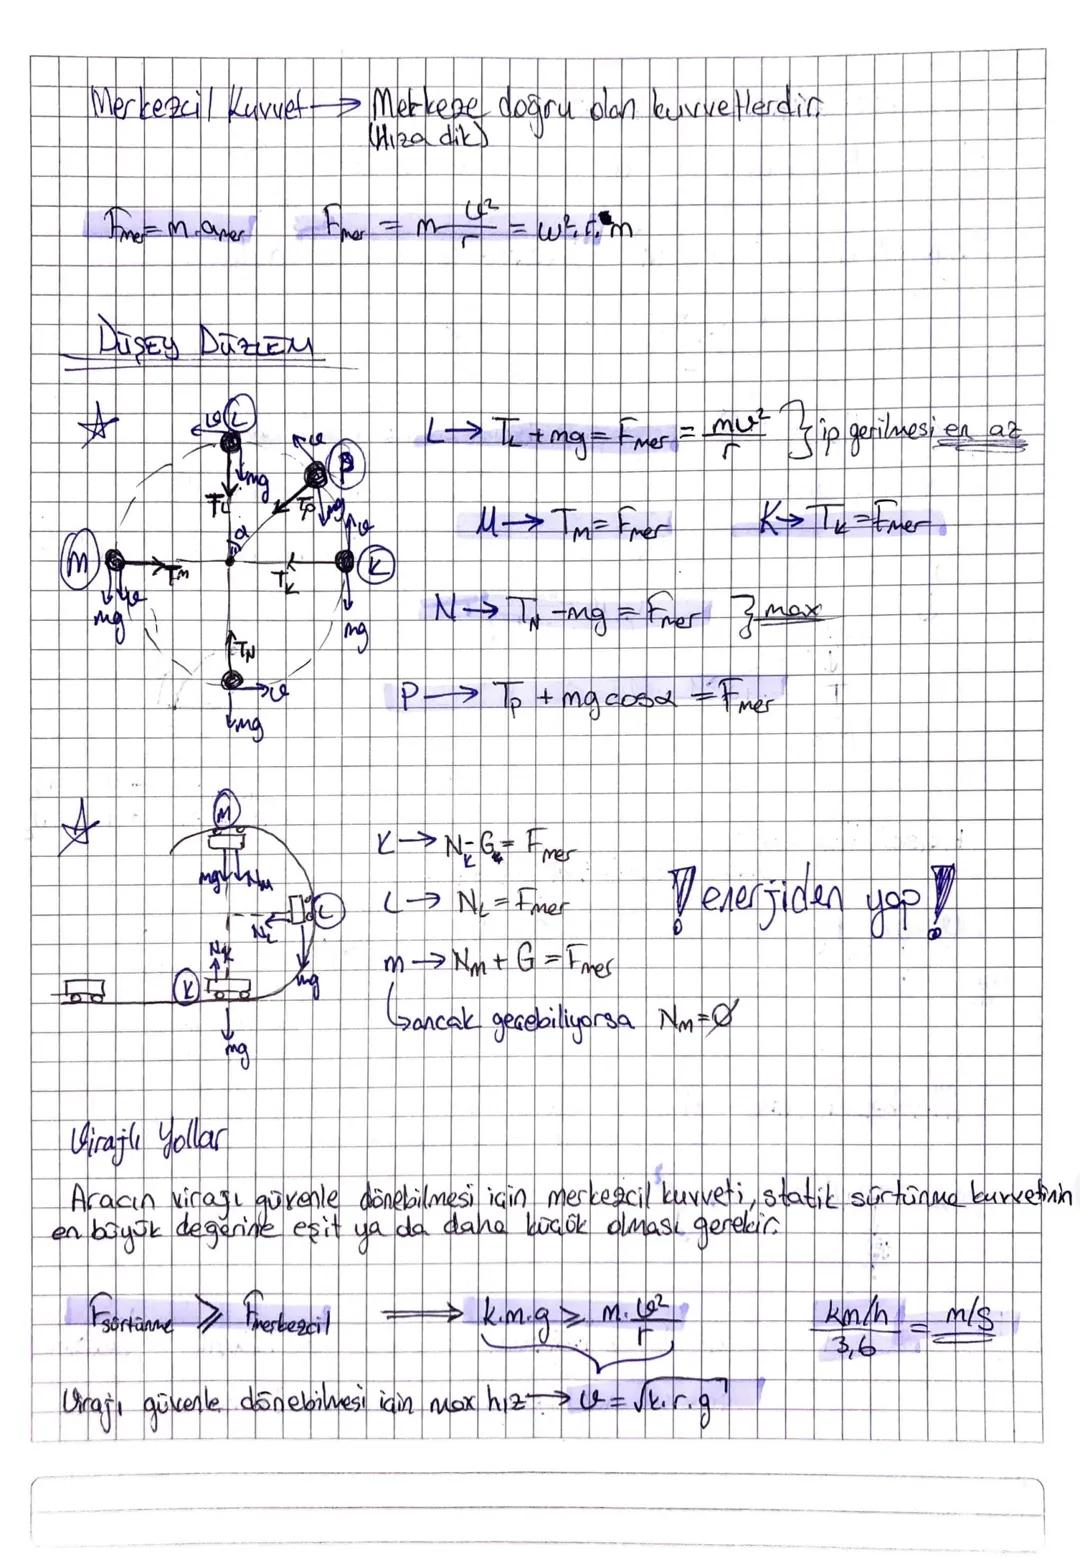 Merkezcil Kuvvet → Merkeze doğru olan kuvvetlerdir.
(Hıza dik)
Fmer = m.amer    Fmer = m v²/r = w².r.m
DÜŞEY DÜZLEM
L → T_L + mg = Fmer = mv²/r } ip gerilmesi en az
M → T_M = Fmer    K → T_K = Fmer
N → T_N - mg = Fmer } max
P → T_P + mg cosα = Fmer
v L
v P
mg
T_L
T_P mg v
α
M T_M T_K K
mg v
mg
T_N
v
mg
M
mg N_M
L
N_L
mg
N_K
K
mg
K → N_K - G = Fmer
L → N_L = Fmer
! enerjiden yap !
m → N_m + G = Fmer
↳ ancak geçebiliyorsa N_M = Ø
Virajlı Yollar
Aracın virajı güvenle dönebilmesi için merkezcil kuvveti, statik sürtünme kuvvetinin
en büyük değerine eşit ya da daha küçük olması gerekir.
Fsürtünme ≥ Fmerkezcil ⟹ k.m.g ≥ m.v²/r    km/h / 3,6 = m/s
Virajı güvenle dönebilmesi için max hız → v = √k.r.g